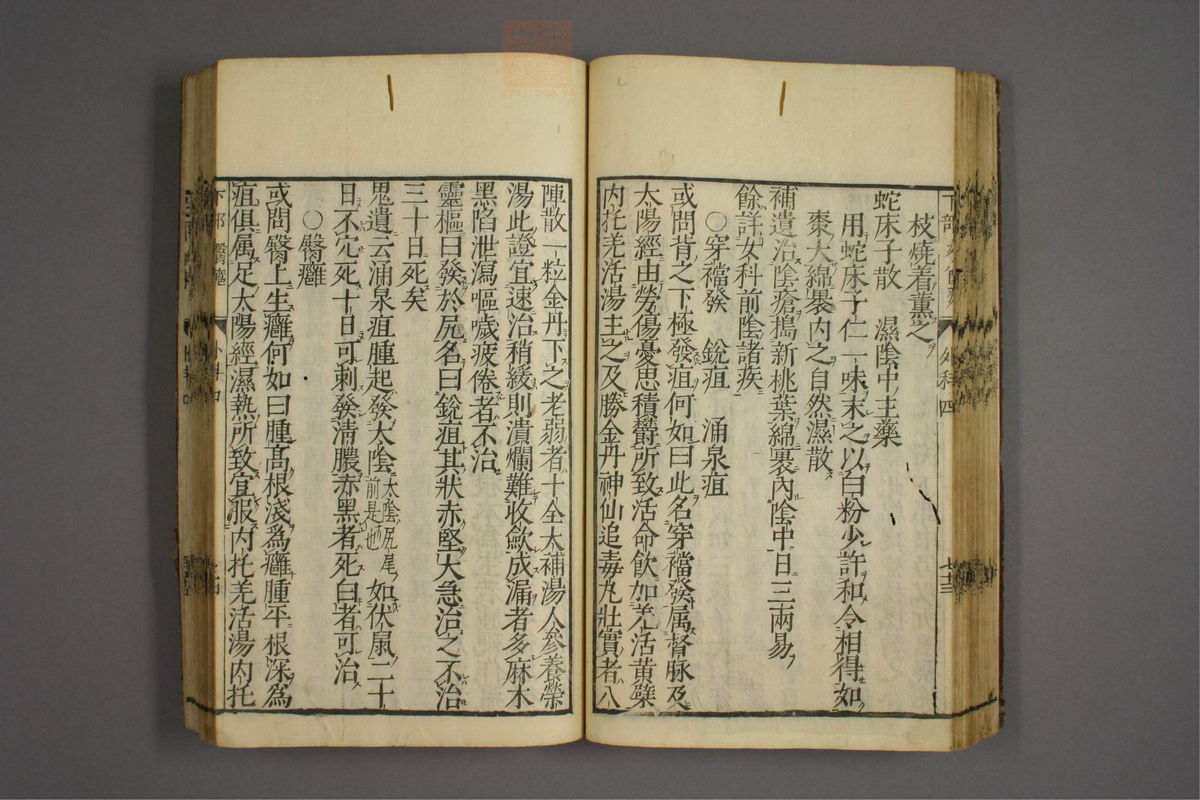 枝燒着薰之
蛇床子散　濕陰中主藥
用蛇床子仁一味末之以白粉少許和令相得如
棗大綿裹内之自然濕散
補遺治陰瘡搗新桃葉綿裹內陰中日三兩易
餘詳女科前陰諸疾
○穿襠發　銳疽　涌泉疽
或問背之下極發疽何如曰此名穿襠發属督脉及
太陽經由勞傷憂思積欝所致活命飲加羌活黄蘖
内托羌活湯主之及勝金丹神仙追毒丸壯實者八
陣散一粒金丹下之老弱者十全大補湯人參養榮
湯此證宜速治稍緩則潰爛難收歛成漏者多麻木
黑陷泄瀉嘔噦疲倦者不治
靈樞曰發於尻名曰銳疽其狀赤堅大急治之不治
三十日死矣
鬼遺云涌泉疽腫起發太陰太陰尻尾前是也如伏鼠二十
日不穴死十日可刺發清膿赤黑者死白者可治
○臀癰
或問臀上生癰何如曰腫高根淺為癰腫平根深為
疽俱属足太陽經濕熱所致宜服内托羌活湯内托
下部　臀癰
外科四
七十三